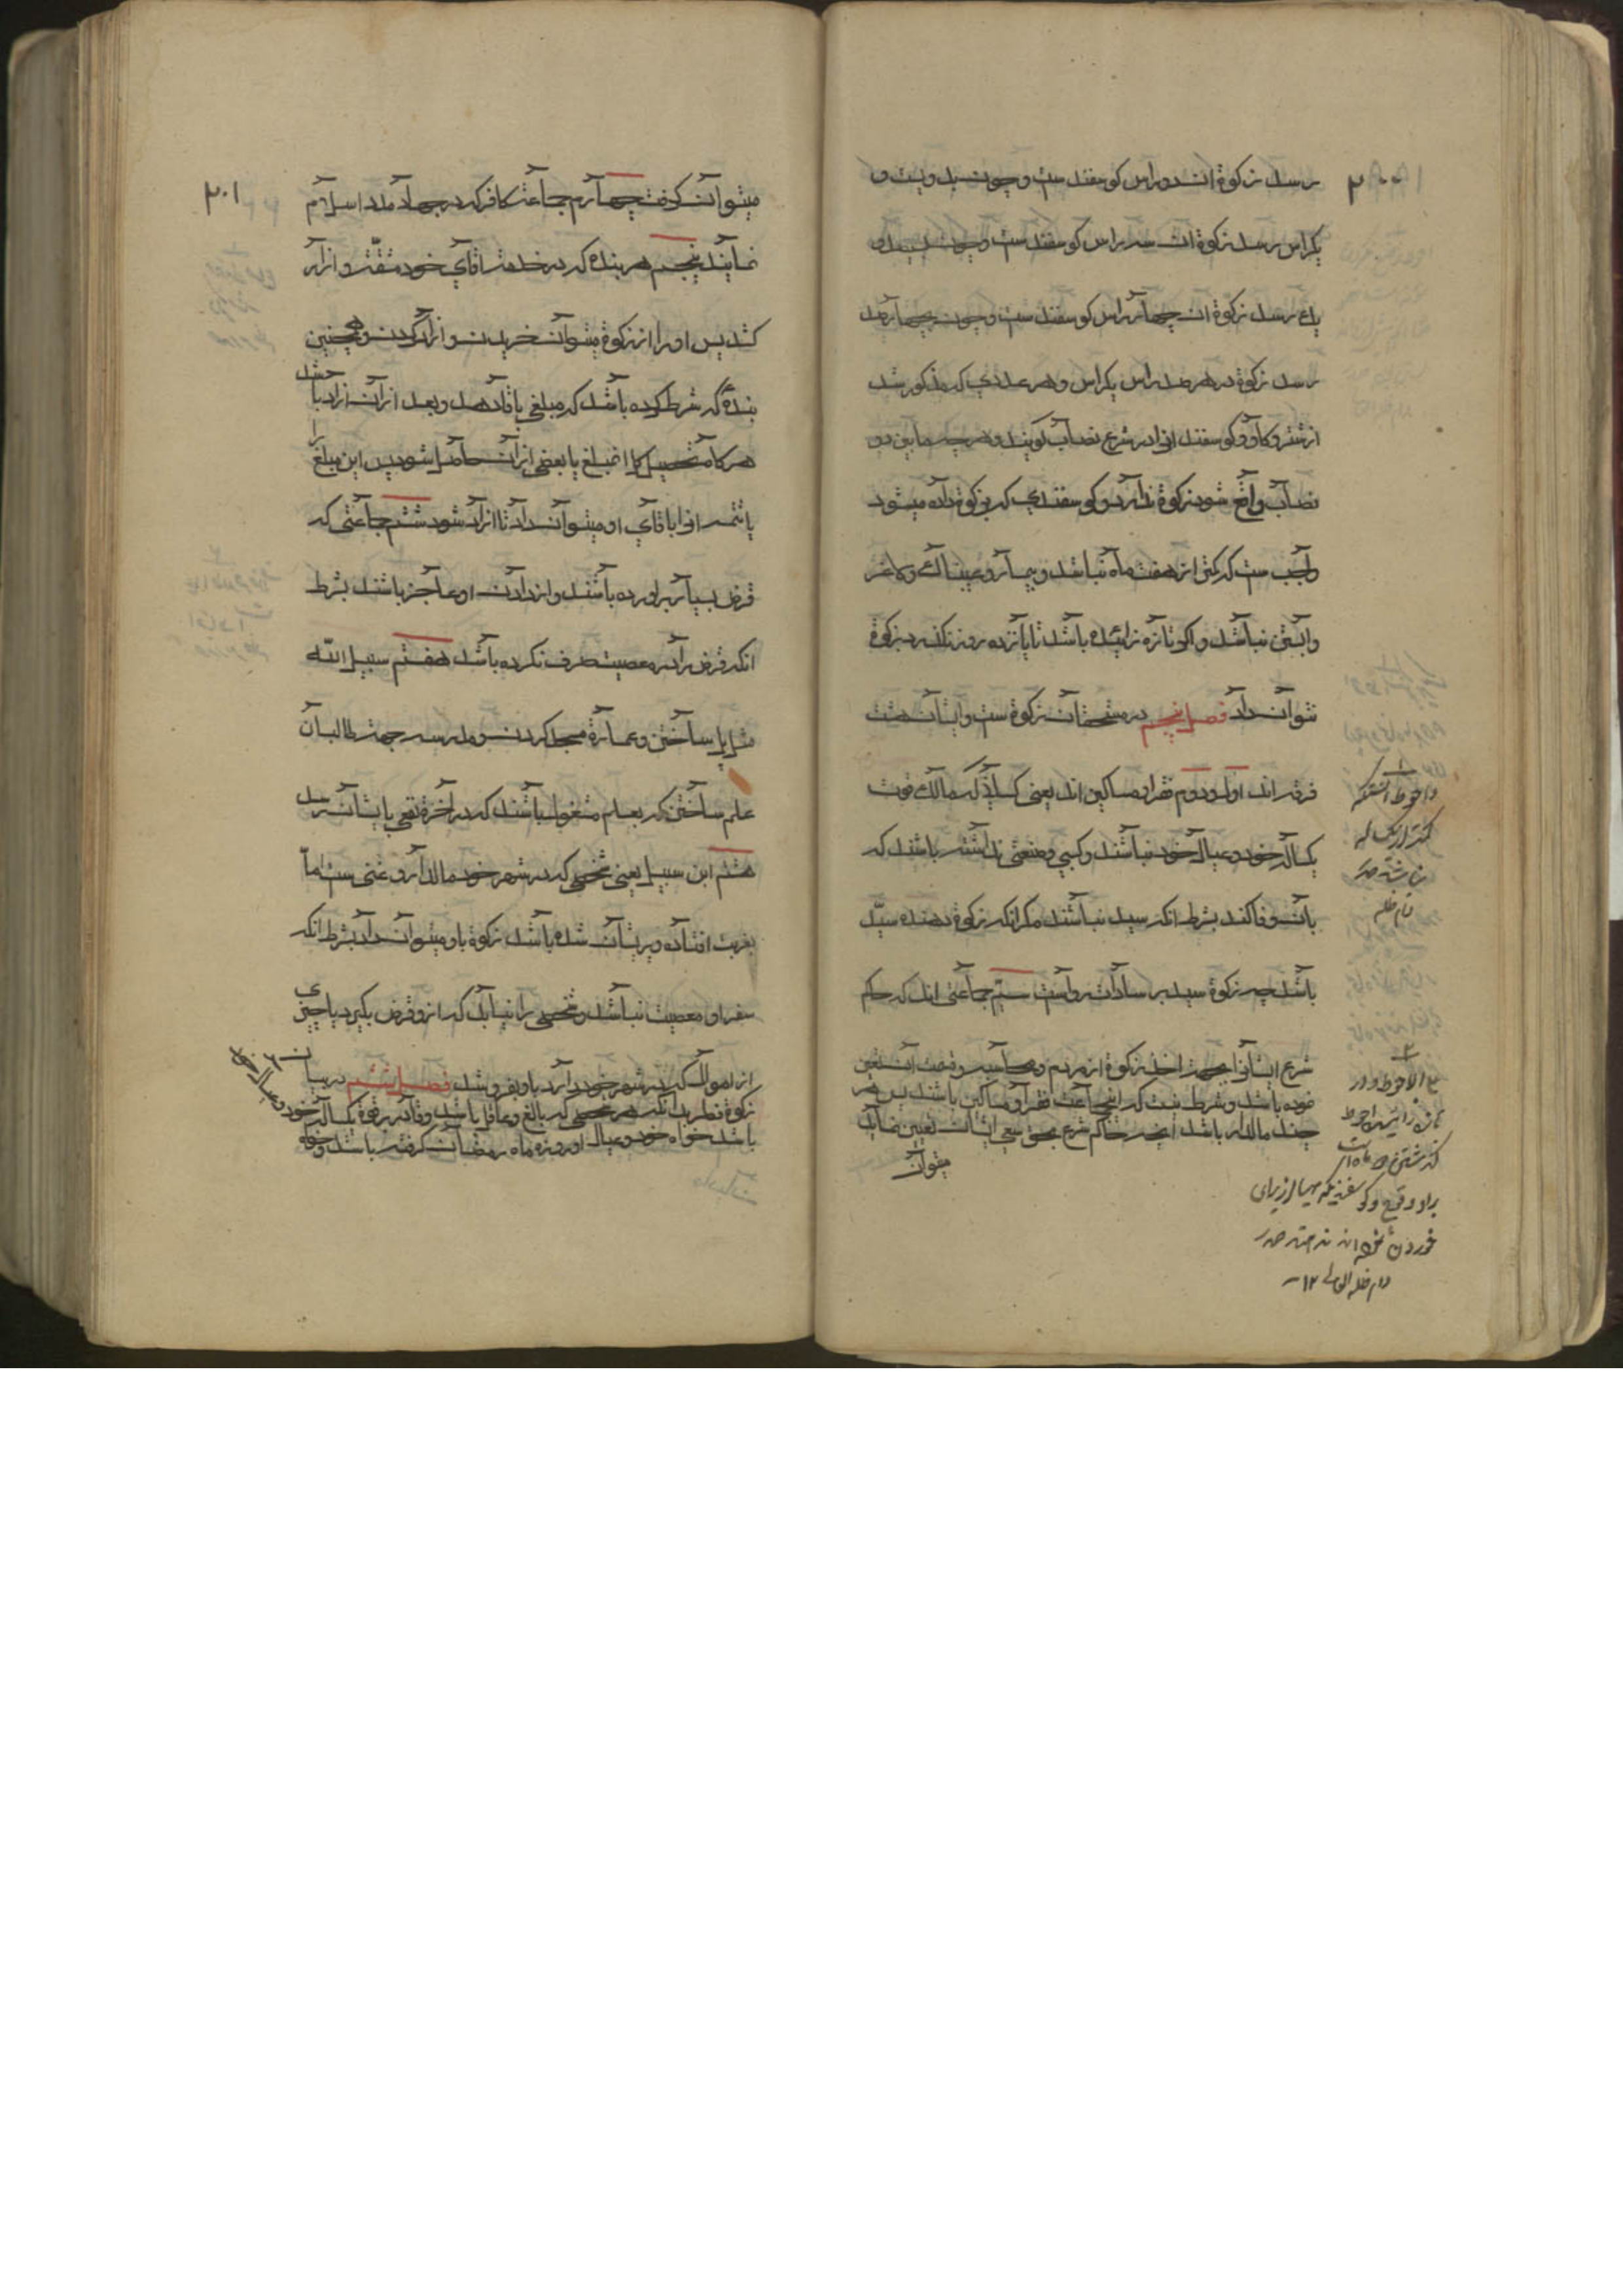 ٢٠٠
رسد زکوة ان دو راس کوسفند ست و چون بدویست و
یکراس رسد زکوة ان سه راس کوسفند ست و چون بسیصد و
یک رسد زکوة ان چهار راس کوسفند ست و چون بچهار صد
رسد زکوة در هر صد راس یکراس و هر عددی که مذکور شد
از شتر و کاو و کوسفند انرا در شرع نصاب کویند و هر چه مابین دو
نصاب واقع شود زکوة ندارد و کوسفندی که بزکوة داده میشود
واجب ست که کمتر از هفت ماه نباشد و بیمار و عیبناک و لاغر
و ابستن نباشد و اکر تازه زائیده باشد تا پانزده روز نکذرد بزکوة
نتوان داد فصل پنجم در مستحقان زکوة ست و ایشان هشت
فرقه اند اول و دوم فقرا و مساکین اند یعنی کسانیکه مالک قوت
یکساله خود و عیال خود نباشند و کسبی و صنعتی نداشته باشند که
بان وفا کند بشرط انکه سید نباشند مکر انکه زکوة دهنده سیّد
باشد چه زکوة سید بر سادات رواست سیّم جماعتی اند که حاکم
شرع ایشانرا بجهت اخذ زکوة از مردم و محاسبه و قسمت ان تعیین
نموده باشد و شرط نیست که اینجماعت فقرا و مساکین باشند پس هر
چند مالدار باشند انچه حاکم شرع بحق سعی ایشان تعیین نماید
میتوان
کمتر از یک
دام ظله
کذشتن
دام ظله العالی ١٢
٢٠١
میتوان کرفت چهارم جماعت کافر که در جهاد مدد اسلام
نمایند پنجم هر بنده که در خدمت اقای خود مشقّت و ازار
کشد پس او را از زکوة میتوان خرید و ازاد کردن و همچنین
بنده که شرط کرده باشد که مبلغی باقا دهد و بعد از ان ازاد باشد
هر کاه تحصیل کل انمبلغ یا بعضی از ان حاصل نشود پس این مبلغ را
یا تتمه انرا باقای او میتوان داد تا ازاد شود ششم جماعتی که
قرض بسیار براورده باشند و از دادن او عاجز باشند بشرط
انکه قرض را در معصیت صرف نکرده باشد هفتم سبیل الله
مثل پل ساختن و عمارة مسجد کردن و مدرسه جهة طالبان
علم ساختن که بعلم مشغول باشند که در اخرة نفعی بایشان رسد
هشتم ابن سبیل یعنی شخصی که در شهر خود مالدار و غنی ست اماّ
بغربت افتاده و پریشان شده باشد زکوة باو میتوان داد بشرط انکه
سفر او معصیت نباشد و شخصی را نیابد که ازو قرض بکیرد یا چیزی
از اموال که در شهر خود دارد باو بفروشد فصل ششم در بیان
زکوة فطر بدانکه هر شخصی که بالغ و عاقل باشد و قادر بر قوة یکساله خود و عیال خود
باشد خواه خود و عیال او روزه ماه رمضان کرفته باشد و خواه